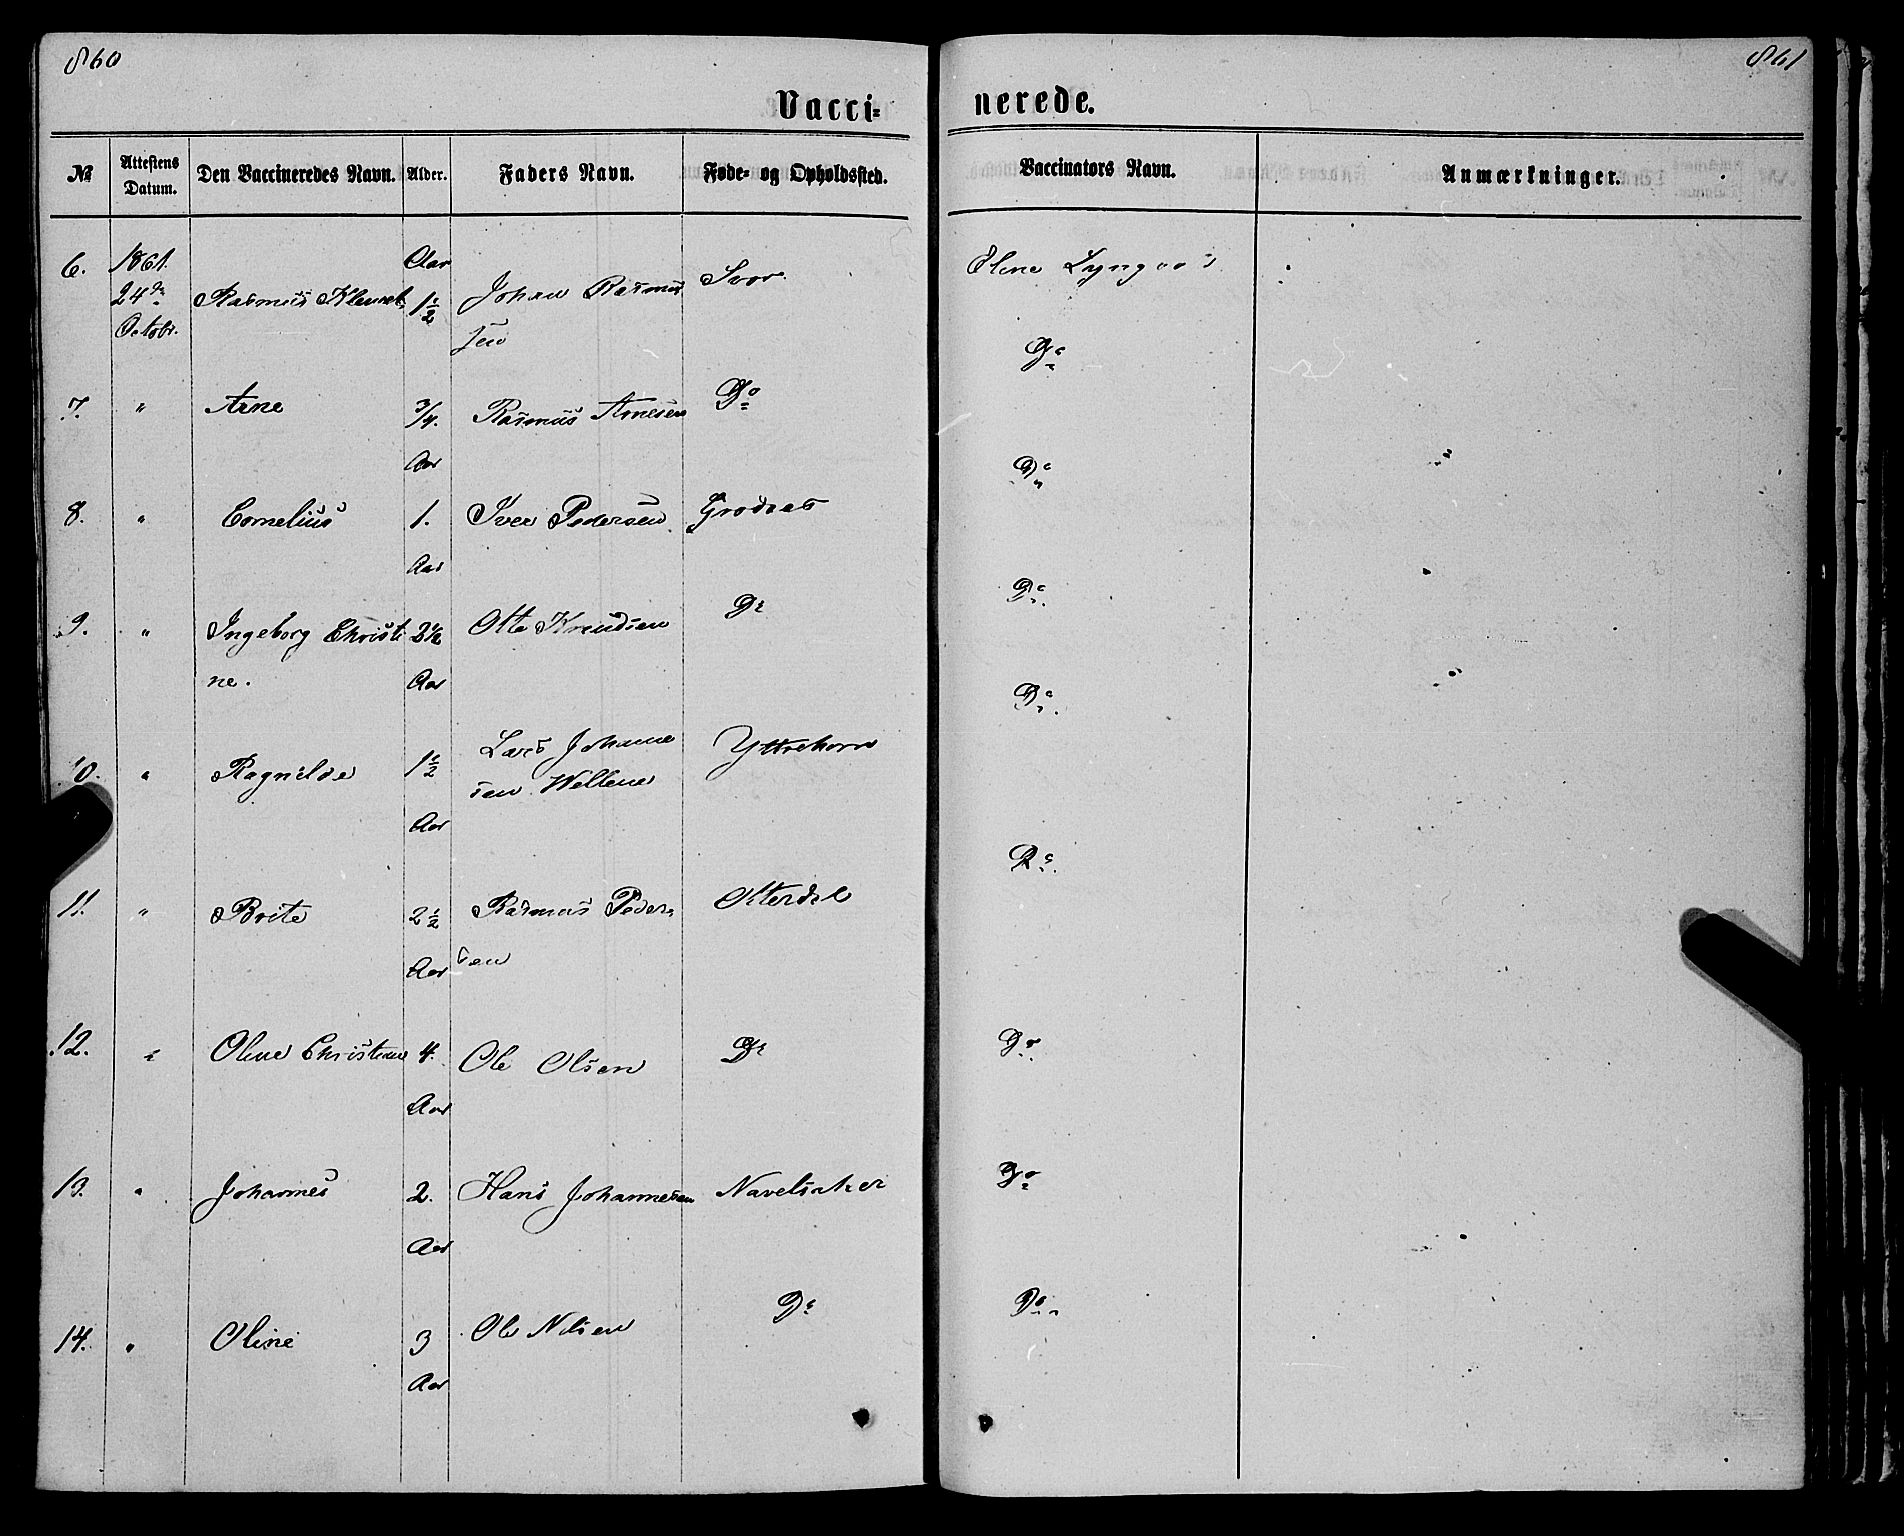 860
861
Vacci-
nerede.
№ Attestens Datum. Den Vaccineredes Navn. Alder. Faders Navn. Føde- og Opholdssted. Vaccinators Navn. Anmærkninger.
6. 1861. Aar Svor Eline
24de Rasmus Klemet 1½ Johan Rasmus
Octobr. sen
Do
7. " Arne 3/4. Rasmus Arnesen Do
Aar
Do
8. " Cornelius 1. Iver Pedersen Grodaas
Aar
Do
9. " Ingeborg Christi 2½ Otto Knudsen Do
ne. Aar
Do
10. " Ragnilde 1½ Lars Johanne Yttrehorn
sen Wellene
Aar
Do
11. " Brite 2½ Rasmus Peder Otterdal
Aar sen
12. " Oline Christiane 4. Ole Olsen Do Do
Aar
13. " Johannes 2. Hans Johannesen Navelsaker Do
Aar
14. " Oline 3 Ole Nilsen Do Do
Aar